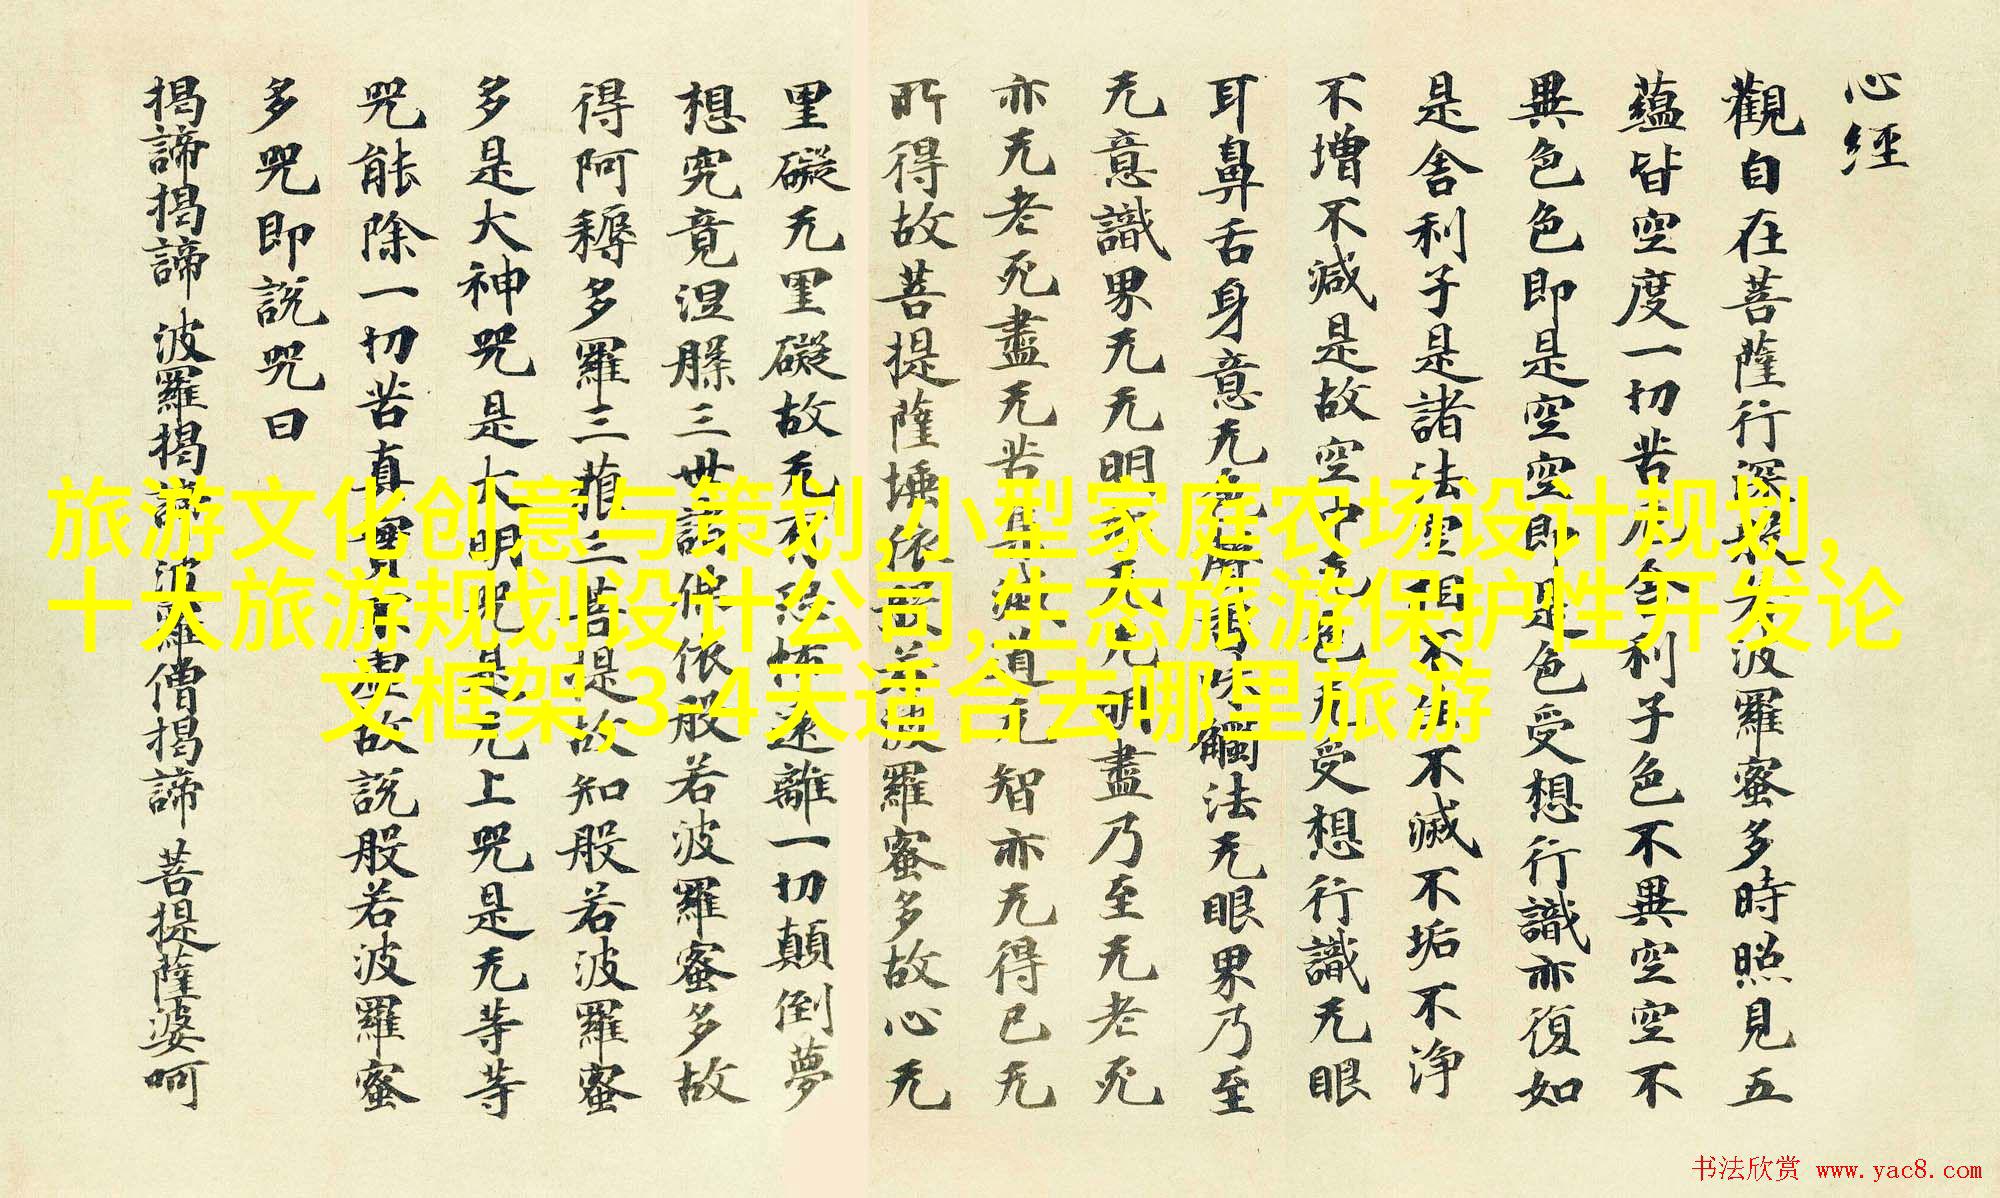 心經
觀自在菩薩行深般若波羅蜜多時照見五
蘊皆空度一切苦厄舍利子色不異空空不
異色色即是空空即是色受想行識亦復如
是舍利子是諸法空相不生不滅不垢不淨
不增不減是故空中无色无受想行識无眼
耳鼻舌身意无色聲香味觸法无眼界乃至
无意識界无无明亦无无明盡乃至无老死
亦无老死盡无苦集滅道无智亦无得已无
所得故菩提薩埵依般若波羅蜜多故心无
罣礙无罣礙故无有恐怖遠離一切顛倒夢
想究竟涅槃三世諸佛依般若波羅蜜多故
得阿耨多羅三藐三菩提故知般若波羅蜜
多是大神咒是大明咒是无上咒是无等等
咒能除一切苦真實不虛故說般若波羅蜜
多咒即說咒曰
揭諦揭諦 波羅揭諦 波羅僧揭諦 菩提薩婆呵
旅游文化创意与策划,小型家庭农场设计规划,
十大旅游规划设计公司,生态旅游保护性开发论
文框架,3-4天适合去哪里旅游
书法欣赏 www.yac8.com